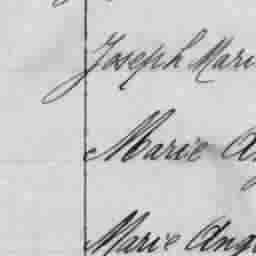 Joseph Mari
Marie A
Marie Ang